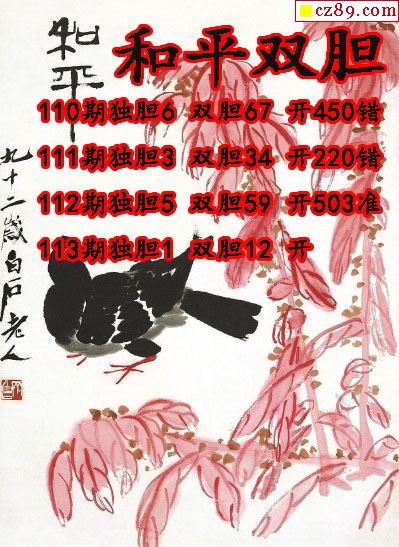 cz89.com
和平双胆
110期独胆6 双胆67 开450错
111期独胆3 双胆34 开220错
112期独胆5 双胆59 开503准
113期独胆1 双胆12 开
和平
九十二岁白石老人